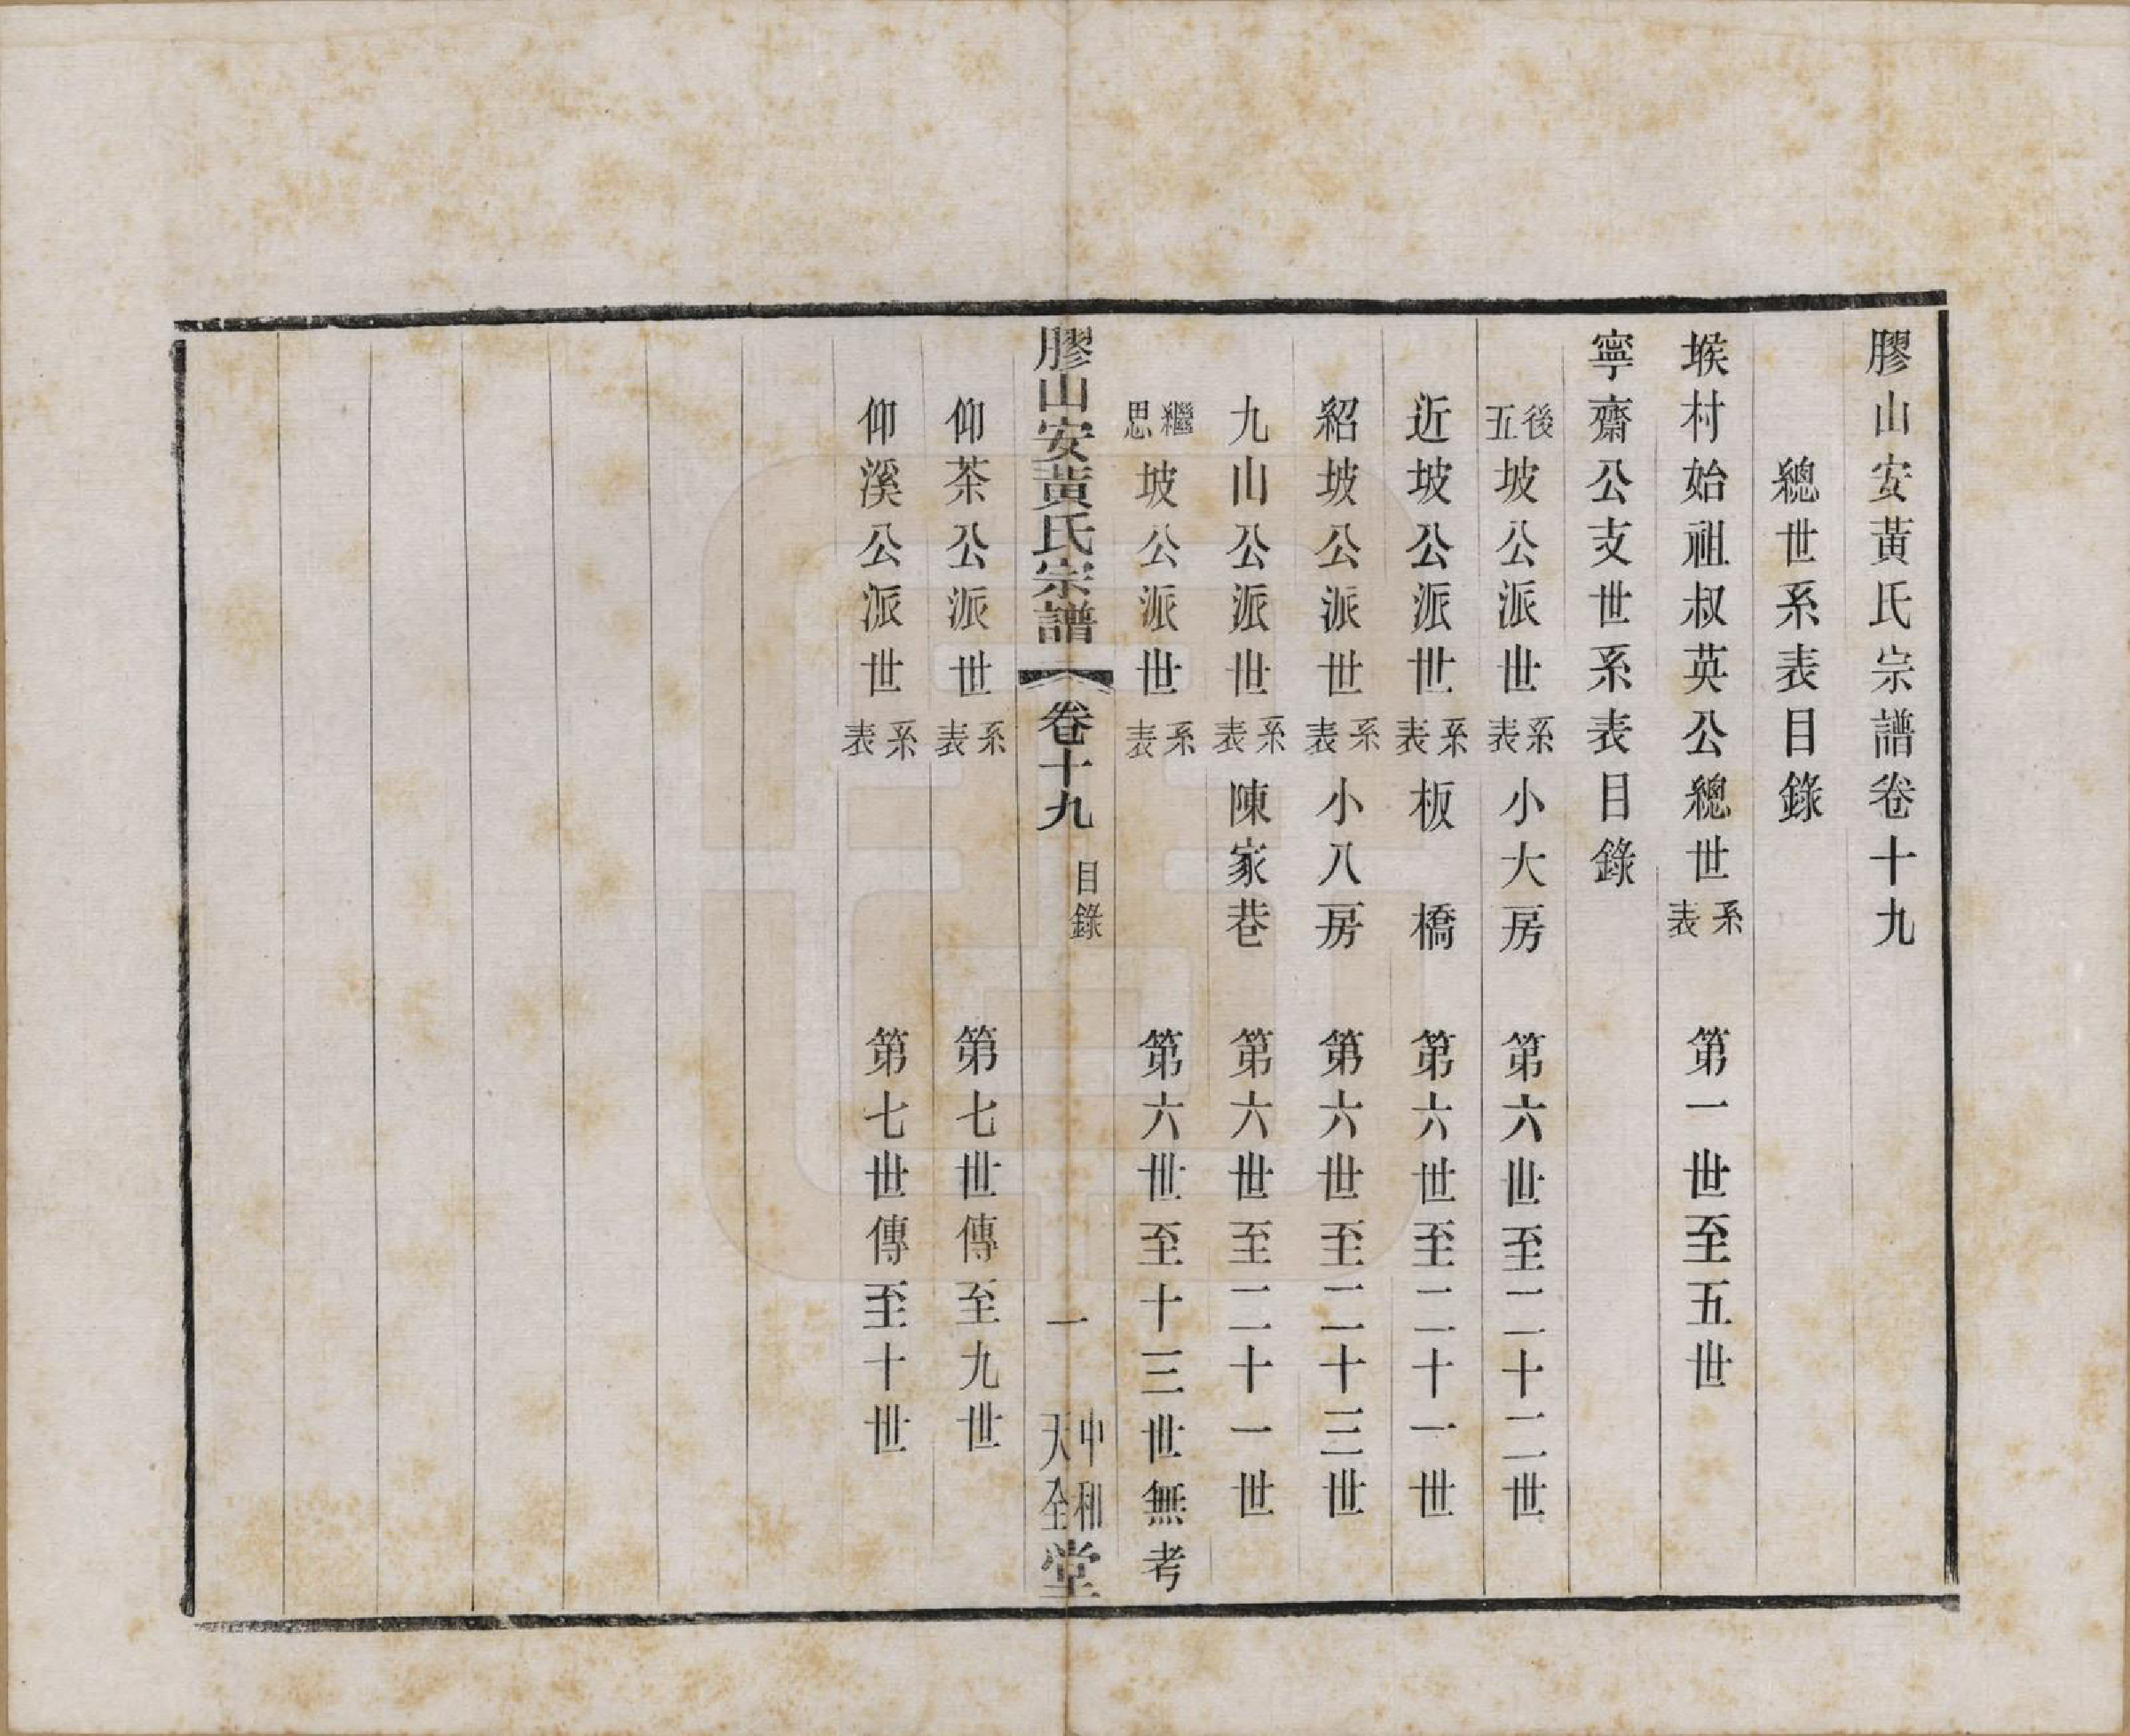 膠山安黃氏宗譜卷十九
總世系表目錄
堠村始祖叔英公總世系表 第一世至五世
寧齋公支世系表目錄
後五坡公派世系表 小大房 第六世至二十二世
近坡公派世系表 板橋 第六世至二十一世
紹坡公派世系表 小八房 第六世至二十三世
九山公派世系表 陳家巷 第六世至二十一世
繼思坡公派世系表 第六世至十三世無考
膠山安黃氏宗譜 卷十九 目錄 一 中和天全堂
仰茶公派世系表 第七世傳至九世
仰溪公派世系表 第七世傳至十世